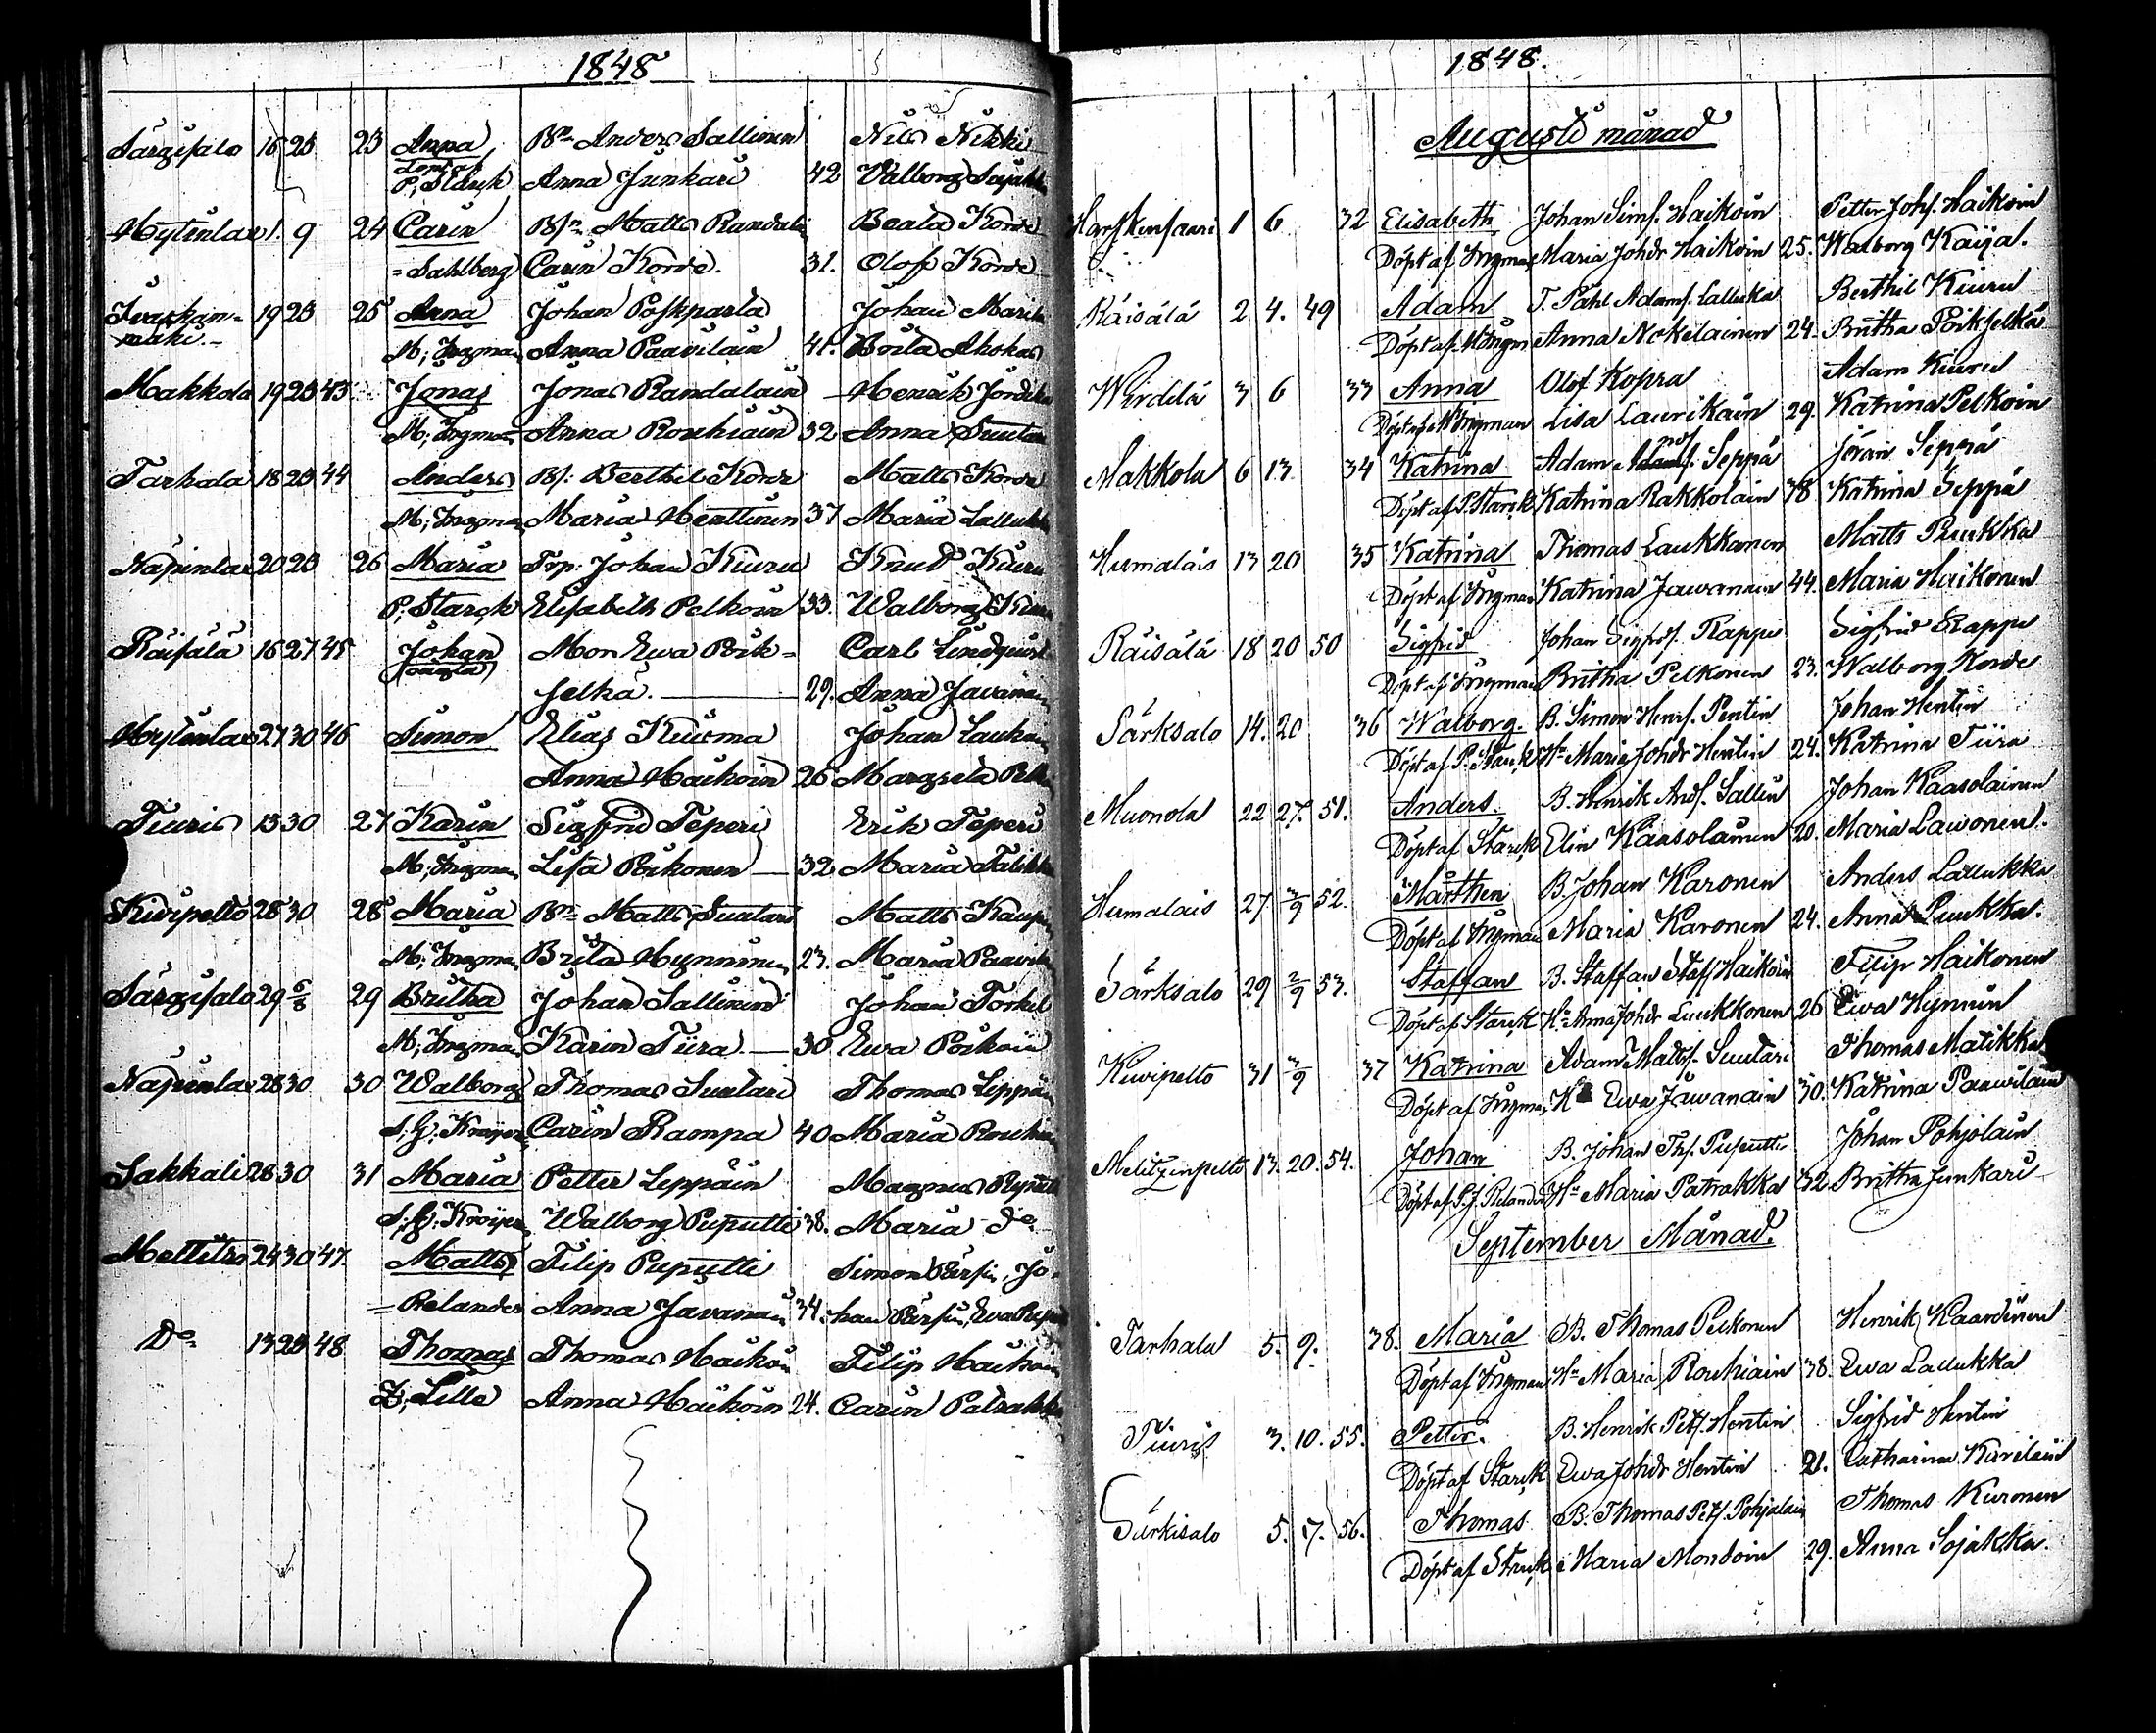 1848
Särgisalo 16 23 23 Anna Bn Anders Sallinen Nils Nikki
P; Starck Anna Junkari 42 Valborg
Hytinlax 1. 9 24 Carin Bn Matts Randalin Beata Korde
= Sahlberg Carin Korde. 31. Oloff Korde
Ivaskan= 19 23 25 Anna Johan Poskparta Johan
mäki.- M; Ingman Anna Paavilain 41. Brita Ahokas
Makkola 19 23 43 Jonas Jonas Randalain Henrik
M; Ingman Anna Rouhiain 32 Anna Suutari
Tarhala 18 23 44 Anders B. Berthil Korde Matts Korde
M; Ingman Maria Henttinen 37 Maria Lallukka
Näpinlax 20 23 26 Maria Trp: Johan Kiuru Knut Kiuru
P; Starck Elisabeth Pelkoin 33. Walborg Kiuru
Räisälä 16 27 45 Johan Mor Ewa Poik= Carl Lindquist
oäagta selkä. 29. Anna Javanain
Hytinlax 27 30 46 Simon Elias Kuisma Johan
Anna Haikoin 26 Margreta
Tiuris 13 30 27 Karin Sigfrid Teperi Erik Teperi
M; Ingman Lisa Poikonen 32 Maria
Kivipelto 28 30 28 Maria Bn Matts Suutari Matts
M; Ingman Brita Hynninen 23. Maria
Särgisalo 29 6/8 29 Britha Johan Sallinen Johan Torkel
M; Ingman Karin Tiira 30 Ewa Poikain
Näpinlax 28 30 30 Walborg Thomas Suutari Thomas Leppäin
S; G; Kröyer Carin Rampa 40 Maria
Sakkali 28 30 31 Maria Petter Leppäin Magnus
S; G; Kröyer Walborg Puputti 38. Maria Do
Mellitsn 24 30 47. Matts Filip Puputti Simon Pärssin, Jo-
= Relander Anna Javanain 34. han Pärssin, Ewa
Do 13 23 48 Thomas Thomas Haikoin Filip Haikoin
Z; Lille Anna Haikoin 24. Carin Patrakka
1848.
Augusti månad
1 6 32 Elisabeth Johan Sims. Haikoin Petter Johs. Haikoin
Döpt af Ingman Maria Johdr Haikoin 25. Walborg Kaija.
Räisälä 2. 4. 49 Adam T. Påhl Adams. Lalluka Berthil Kiuru
Döpt af M Ingm Anna Nokelainen 24. Britha Poikselkä
Wirdilä 3 6 33 Anna Olof Kopra Adam Kiuru
Döpt af M Ingman Lisa Laurikain 29. Katrina Pelkoin
Makkola 6 13 34 Katrina Adam Seppä Jöran Seppä
Döpt af P. Starck Katrina Rakkolain 38 Katrina Seppä
Humalais 13 20 35 Katrina Thomas Laukkanen Matts Puukka
Döpt af Ingman Katrina Jawanain 44. Maria Haikonen
Räisälä 18 20 50 Sigfrid Johan Sigfrds. Rappu Sigfrid Rappu
Döpt af Ingman Britha Pelkonen 23. Walborg Korde
Särksalo 14. 20 36 Walborg. B. Simon Henrs. Pentin Johan Hentin
Döpt af P. Starck Hu Maria Johdr Hentin 24. Katrina Tiira
Muonola 22 27. 51. Anders. B. Henrik Ands. Sallin Johan Kaasolainen
Döpt af Starck Elin Kaasolainen 20. Maria Lawonen.
Humalais 27 3/9 52. Mårthen B. Johan Karonen Anders Lallukka
Döpt af Ingman Maria Karonen 24. Anna Puukka.
Särksalo 29 2/9 53. Staffan B. Staffan Stafs Haikoin Filip Haikonen
Döpt af Starck Hu Anna Johdr Luukkonen 26 Ewa Hynnin
Kiwipelto 31 3/9 37 Katrina Adam Matts. Suutari Thomas Matikka
Döpt af Ingman Hu Ewa Jäwanain 30. Katrina Paawilain
Melitzinpelto 13. 20. 54. Johan B. Johan Ths. Puputti Johan Pohjolain
Döpt af S. J. Relander Hu Maria Patrakka 32 Britha Junkari
September Månad.
Tarhala 5. 9. 38. Maria B. Thomas Pelkonen Henrik Kaardinen
Döpt af Ingman Hu Maria Rouhiain 38. Ewa Lallukka
Tiuris 3. 10. 55. Petter. B. Henrik Pets. Hentin Sigfrid Hentin
Döpt af Starck Ewa Johdr Hentin 21. Catharina Kiwilain
Särkisalo 5. 7. 56. Thomas B. Thomas Pets. Pohjalain Thomas Kuronen
Döpt af Starck Maria Mondoin 29. Anna Sojakka.